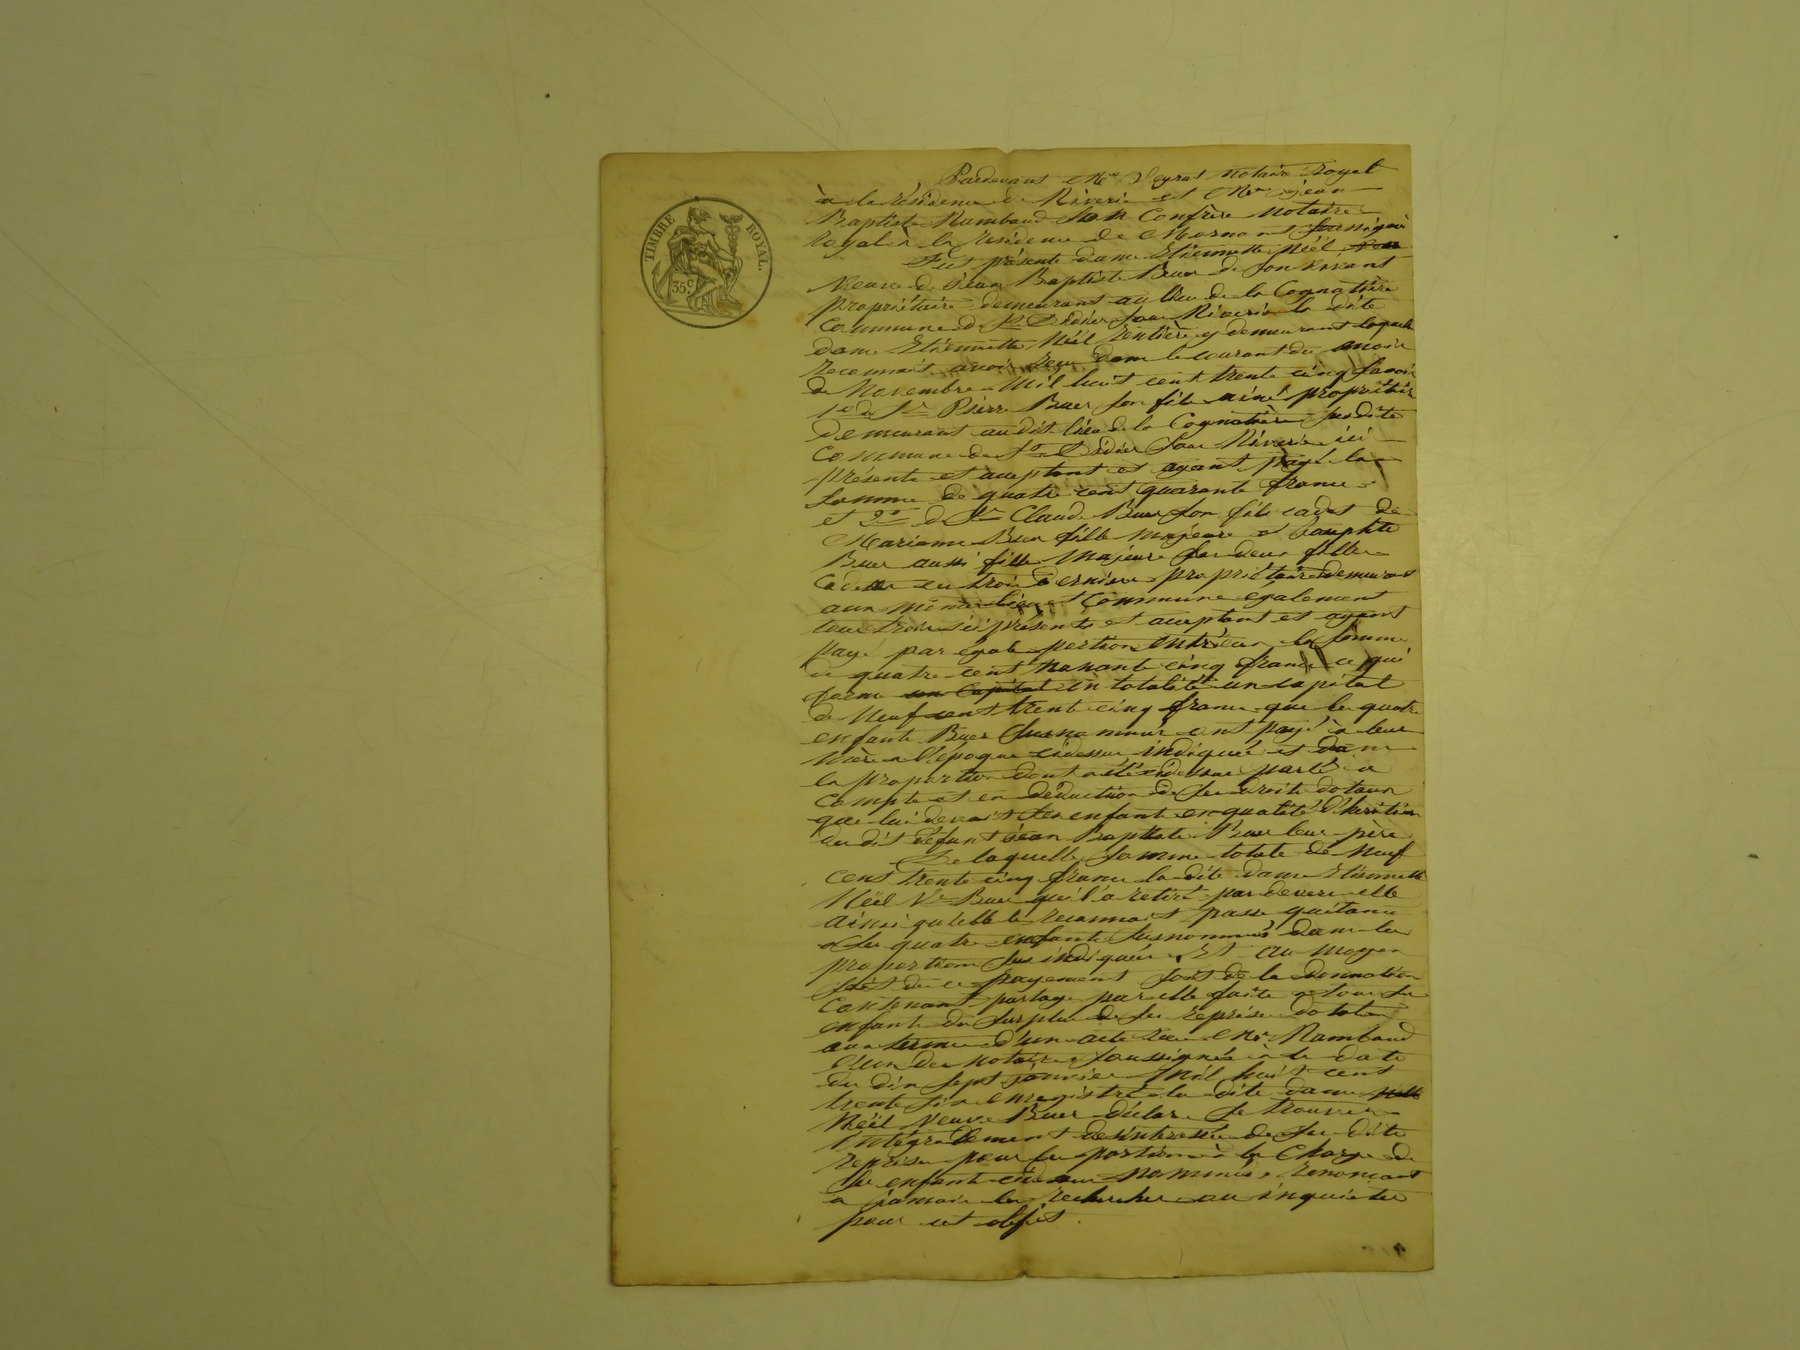 TIMBRE ROYAL.
35c.
Pardevant Me Veyrat notaire Royal
à la résidence de Riverie et Me jean
Baptiste Rambaud son Confrère notaire
Royal à la résidence de Mornant soussignés
Fut présente dame Etiennette Néél
veuve de jean Baptiste Buer de son vivant
propriétaire demeurant au lieu de la Cognatière
Commune de St Didier sous Riverie la dite
dame Etiennette Néél rentière y demeurant laquelle
reconnait avoir reçu dans le courant du mois
de Novembre Mil huit cent trente cinq savoir
1o de Sr Pierre Buer son fils ainé propriétaire
demeurant au dit lieu de la Cognatière susdite
Commune de St Didier sous Riverie ici
présent et acceptant et ayant payé la
somme de quatre cent quarante francs
et 2o de Sr Claude Buer son fils cadet de
Marianne Buer fille majeure et
Buer aussi fille majeure ses deux filles
cadettes ces trois derniers propriétaires demeurant
aux mêmes lieu et Commune egalement
tous trois ici présents et acceptant et ayant
payé par égale portion entr'eux la somme
de quatre cent nonante cinq francs ce qui
forme un Capital en totalité un capital
de Neuf cent trente cinq francs que les quatre
enfants Buer susnommés ont payé à leur
mère à l'époque cidessus indiquée et dans
la proportion dont a été cidessus parlé a
Compte et en déduction de ses droits dotaux
que lui devait ses enfants en qualité d'héritiers
du dit défunt jean Baptiste Buer leur père
De laquelle somme totale de Neuf
cent trente cinq francs la dite dame Etiennette
Néél Ve Buer qui l'a retiré par devers elle
ainsi qu'elle le reconnait passe quitance
a ses quatre enfants susnommés dans les
proportions sus indiquées. Et au moyen
soit de ce payement soit de la donnation
Contenant partage par elle faite à tous ses
enfants du surplus de ses reprises dotales
aux termes d'un acte reçu Me Rambaud
l'un des notaires soussignés à la date
du dix sept janvier Mil huit cent
trente six enregistré la dite dame
Néél Veuve Buer déclare se trouver
intégralement desintéressée de ses dites
reprises pour les portions à la charge de
ses enfants cidessus nommés, renonçant
à jamais les rechercher ou inquieter
pour cet objet.